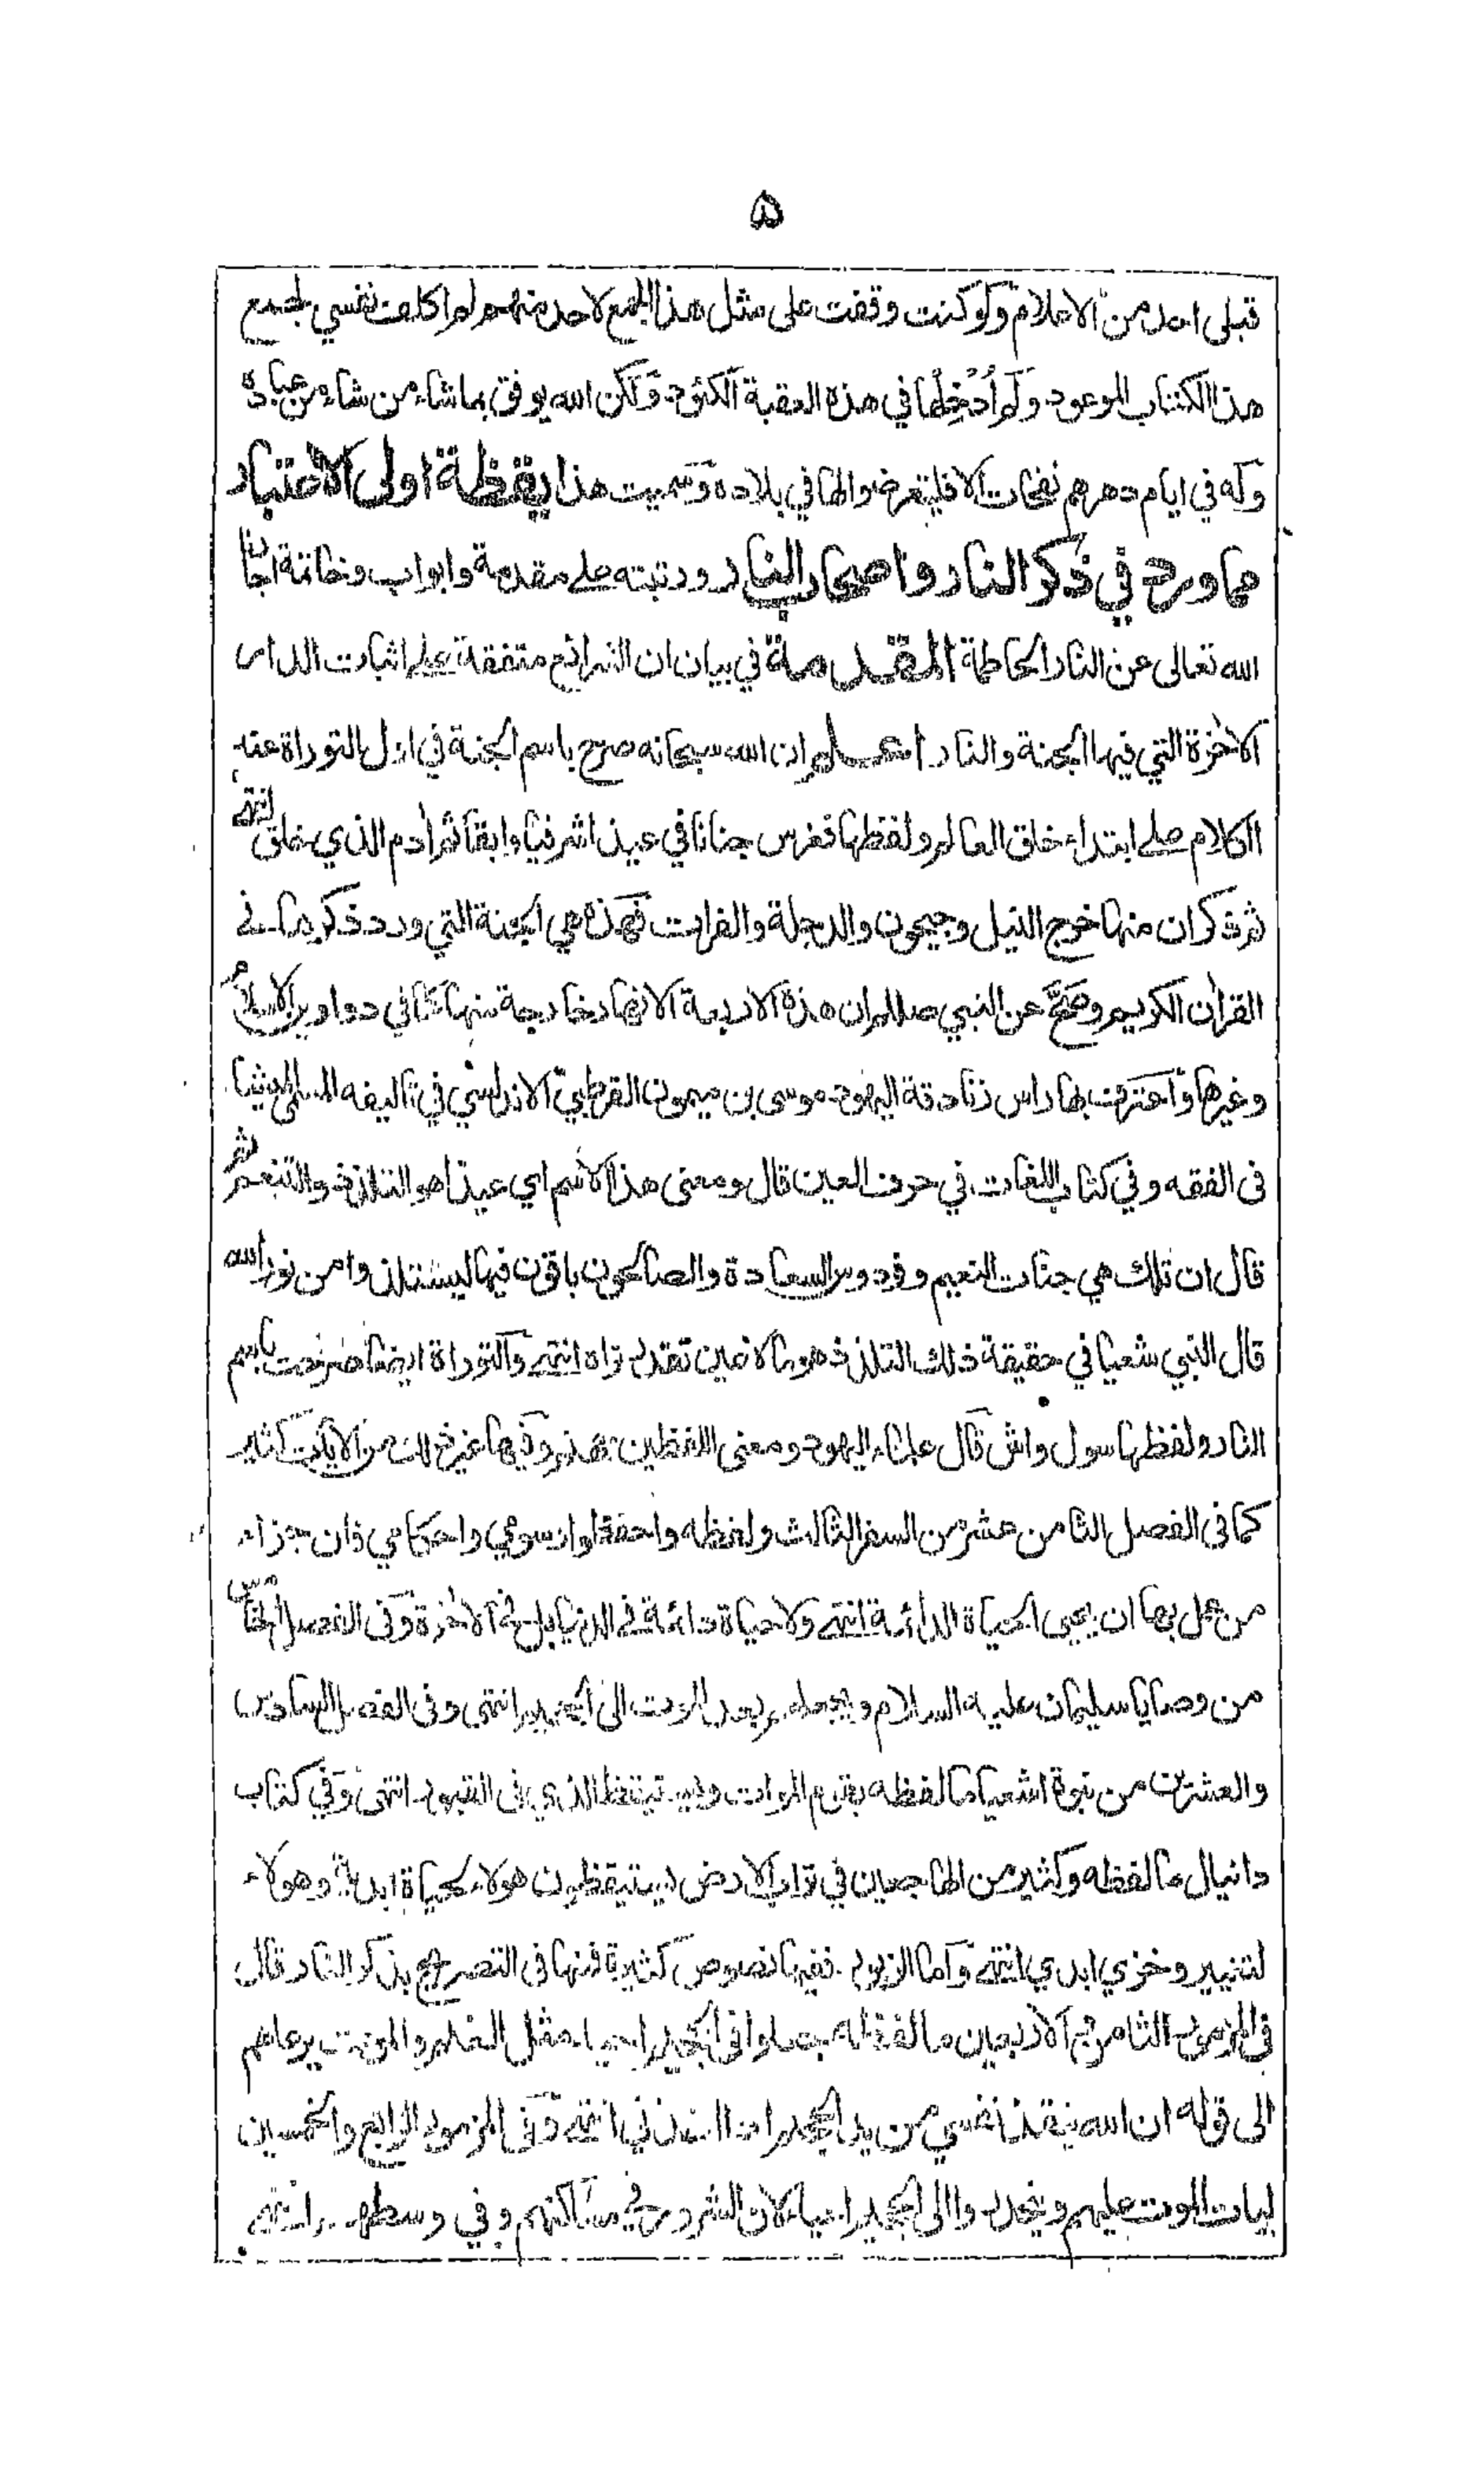 ۵
قبلى احد من الاعلام ولو كنت وقفت على مثل هذا الجمع لاحد منهم لم اكلف نفسي بجمع
هذا الكتاب الموعود ولم أدخلها في هذه العقبة الكئود ولكن الله يوفق بما شاء من شاء من عباده
وله في ايام دهرهم نفحات الا فليتعرضوا لها في بلاده وسميت هذا يقظة اولى الاعتبار
مما ورد في ذكر النار واصحاب النار ورتبته على مقدمة وابواب وخاتمة اجارنا
الله تعالى عن النار الحاطمة المقدمة في بيان ان الشرائع متفقة على اثبات الدار
الاخرة التي فيها الجنة والنار اعلم ان الله سبحانه صرح باسم الجنة في اول التوراة عند
الكلام على ابتداء خلق العالم ولفظها فغرس جنانا في عيذا شرقيا وابقا ثم ادم الذي خلق انتهى
ثم ذكر ان منها خرج النيل وجيحون والدجلة والفرات فهذه هي الجنة التي ورد ذكرها في
القران الكريم وصح عن النبي صللم ان هذه الاربعة الانهار خارجة منها كما في دواوين الاسلام
وغيرها واعترف بها راس زنادقة اليهود موسى بن ميمون القرطبي الاندلسي في تاليفه المسمى بالمشنا
فى الفقه وفي كتاب اللغات في حرف العين قال ومعنى هذا الاسم اي عيذا هو التلذذ والتنعم ثم
قال ان تلك هي جنات النعيم وفردوس السعادة والصالحون باقون فيها ليستلذوا من نور الله
قال النبي شعيا في حقيقة ذلك التلذذ هو ما لا عين تقدر تراه انتهى والتوراة ايضا صرحت باسم
النار ولفظها سول واش قال علماء اليهود ومعنى اللفظين جهنم وفيها غير ذلك من الايات كثير
كما فى الفصل الثامن عشر من السفر الثالث ولفظه واحفظوا رسومي واحكامي فان جزاء
من عمل بها ان يحيى الحياة الدائمة انتهى ولا حياة دائمة في الدنيا بل في الاخرة وفى الفصل الخامس
من وصايا سليمان عليه السلام ويجعله بعد الموت الى الجحيم انتهى وفى الفصل السادس
والعشرين من نبوة اشعيا ما لفظه يقوم الموات ويستيقظ الذي فى القبور انتهى وفي كتاب
دانيال ما لفظه وكثير من الهاجعين في تراب الارض يستيقظون هولاء لحياة ابدية وهولاء
لتنيير وخزي ابدي انتهى واما الزبور ففيها نصوص كثيرة فمنها فى التصريح بذكر النار قال
في المزمور الثامن والاربعين ما لفظه جعلوا فى الجحيم احياء مثل الغنم والموت يرعاهم
الى قوله ان الله ينقذ نفسي من يد الجحيم اذا اخذني انتهى وفى المزمور الرابع والخمسين
ليات الموت عليهم وينحدروا الى الجحيم احياء لان الشرور في مساكنهم وفي وسطهم انتهى